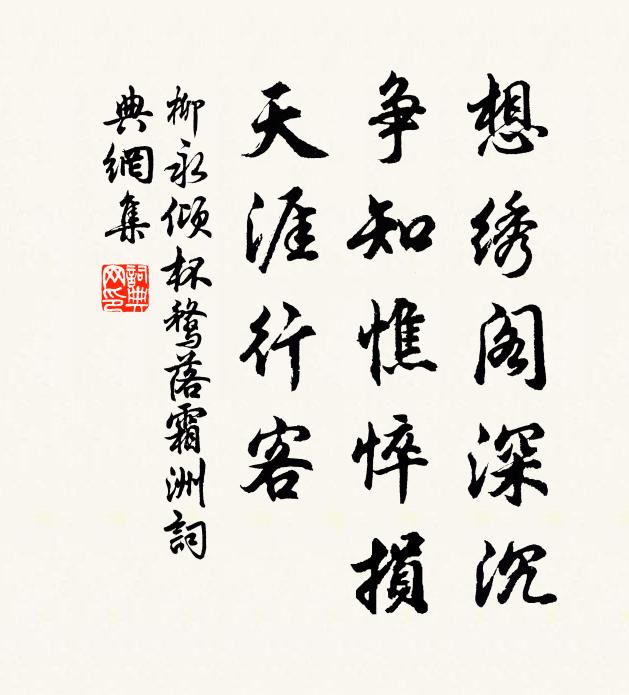 想绣阁深沉
争知憔悴损
天涯行客
柳永倾杯鹜落霜洲詞
典網集
詞典网印